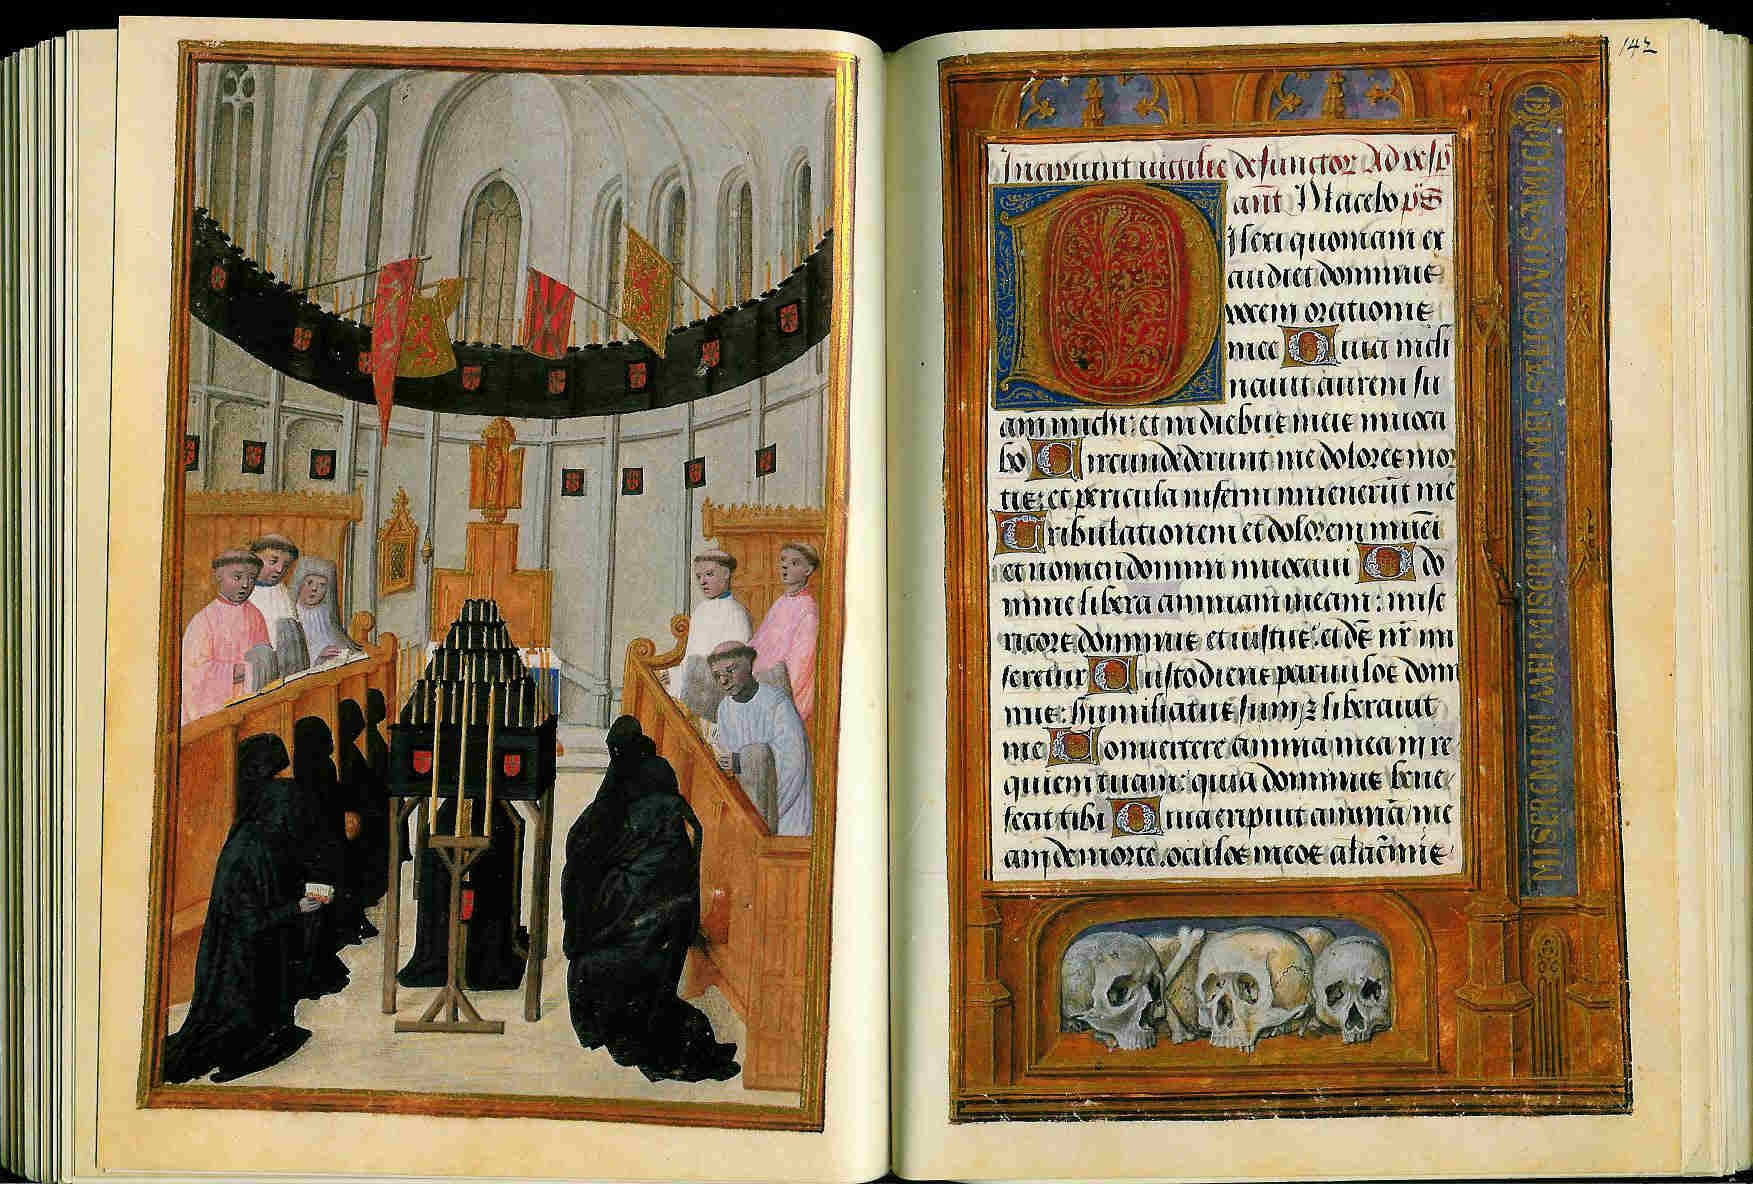 142
Incipiunt vigilie defunctor Ad vesp
ant Placebo ps
Dilexi quoniam ex
audiet dominus
vocem orationis
mee Quia incli
navit aurem su
am michi: et in diebus meis invoca
bo Circumdederunt me dolores mor
tis: et pericula inferni invenerut me
Tribulationem et dolorem inveni
et nomen domini invocavi O do
mine libera animam meam: mise
ricors dominus et iustus: et de nr mi
seretur Custodiens parvulos domi
nus: humiliatus sum z liberavit
me Convertere anima mea in re
quiem tuam: quia dominus bene
fecit tibi Quia eripuit anima me
am de morte. oculos meos a lacrimis
MISERCMINI MEI · MISEREMINI · MEI · SALTEM · VOS · AMICI · MEI